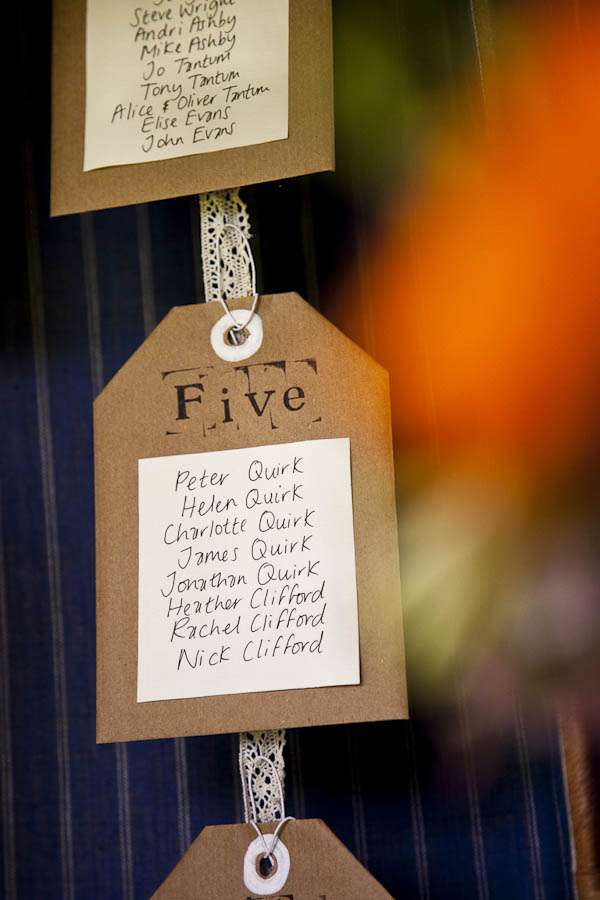 Steve Wright
Andri Ashby
Mike Ashby
Jo Tantum
Tony Tantum
Alice & Oliver Tantum
Elise Evans
John Evans
Five
Peter Quirk
Helen Quirk
Charlotte Quirk
James Quirk
Jonathan Quirk
Heather Clifford
Rachel Clifford
Nick Clifford